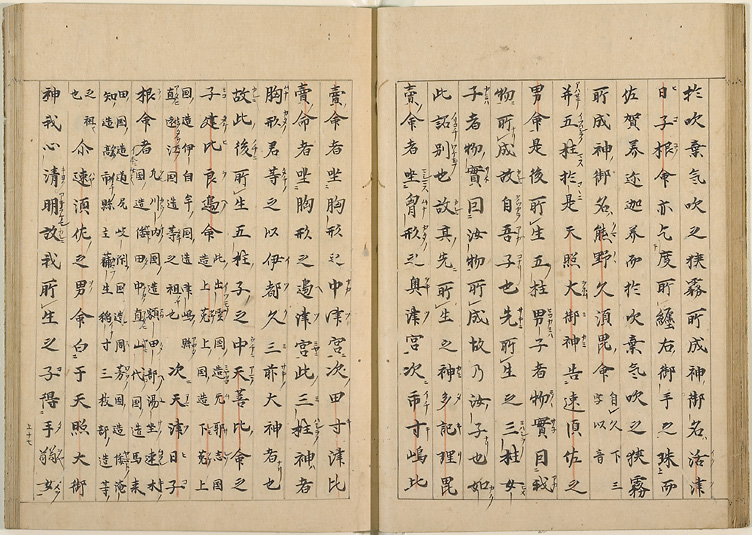 於吹棄氣吹之狹霧所成神御名活津
日子根命亦乞度所纒右御手之珠而
佐賀美迩迦美而於吹棄氣吹之狹霧
所成神御名熊野久須毘命自久下三
字以音
并五柱於是天照大御神告速須佐之
男命是後所生五柱男子者物實因我
物所成故自吾子也先所生之三柱女
子者物實因汝物所成故乃汝子也如
此詔別也故其先所生之神多紀理毘
賣命者坐胷形之奧津宮次市寸嶋比
賣命者坐胸形之中津宮次田寸津比
賣命者坐胸形之邊津宮此三柱神者
胸形君等之以伊都久三前大神者也
故此後所生五柱子之中天菩比命之
子建比良鳥命此出雲國造无耶志國
造上菟上國造下菟上
國造伊自牟國造津嶋縣
直遠江國造等之祖也次天津日子
根命者凡川内國造額田部湯坐連木
國造倭田中直山代國造馬來
田國造道尻岐閇國造周芳國造倭淹
知造高市縣主蒲生稻寸三枝部造等
之祖
也尒速須佐之男命白于天照大御
神我心清明故我所生之子得手弱女